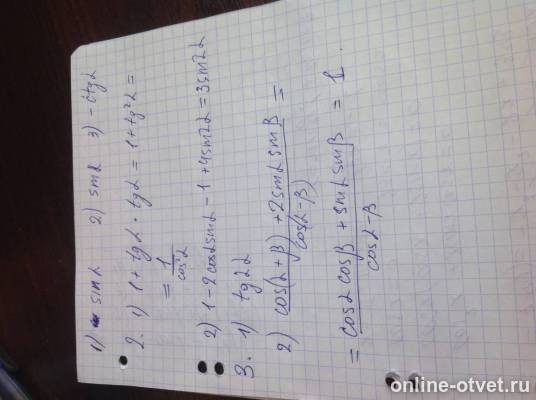 1) sin α 2) sin α 3) - ctg α
2. 1) 1 + tg α · tg α = 1 + tg² α =
= 1/cos² α
2) 1 - 2 cos α sin α - 1 + 4 sin 2α = 3 sin 2α
3. 1) tg 2α
2) cos(α + β) + 2 sin α sin β / cos(α - β) =
= cos α cos β + sin α sin β / cos α - β = 1.
online-otvet.ru